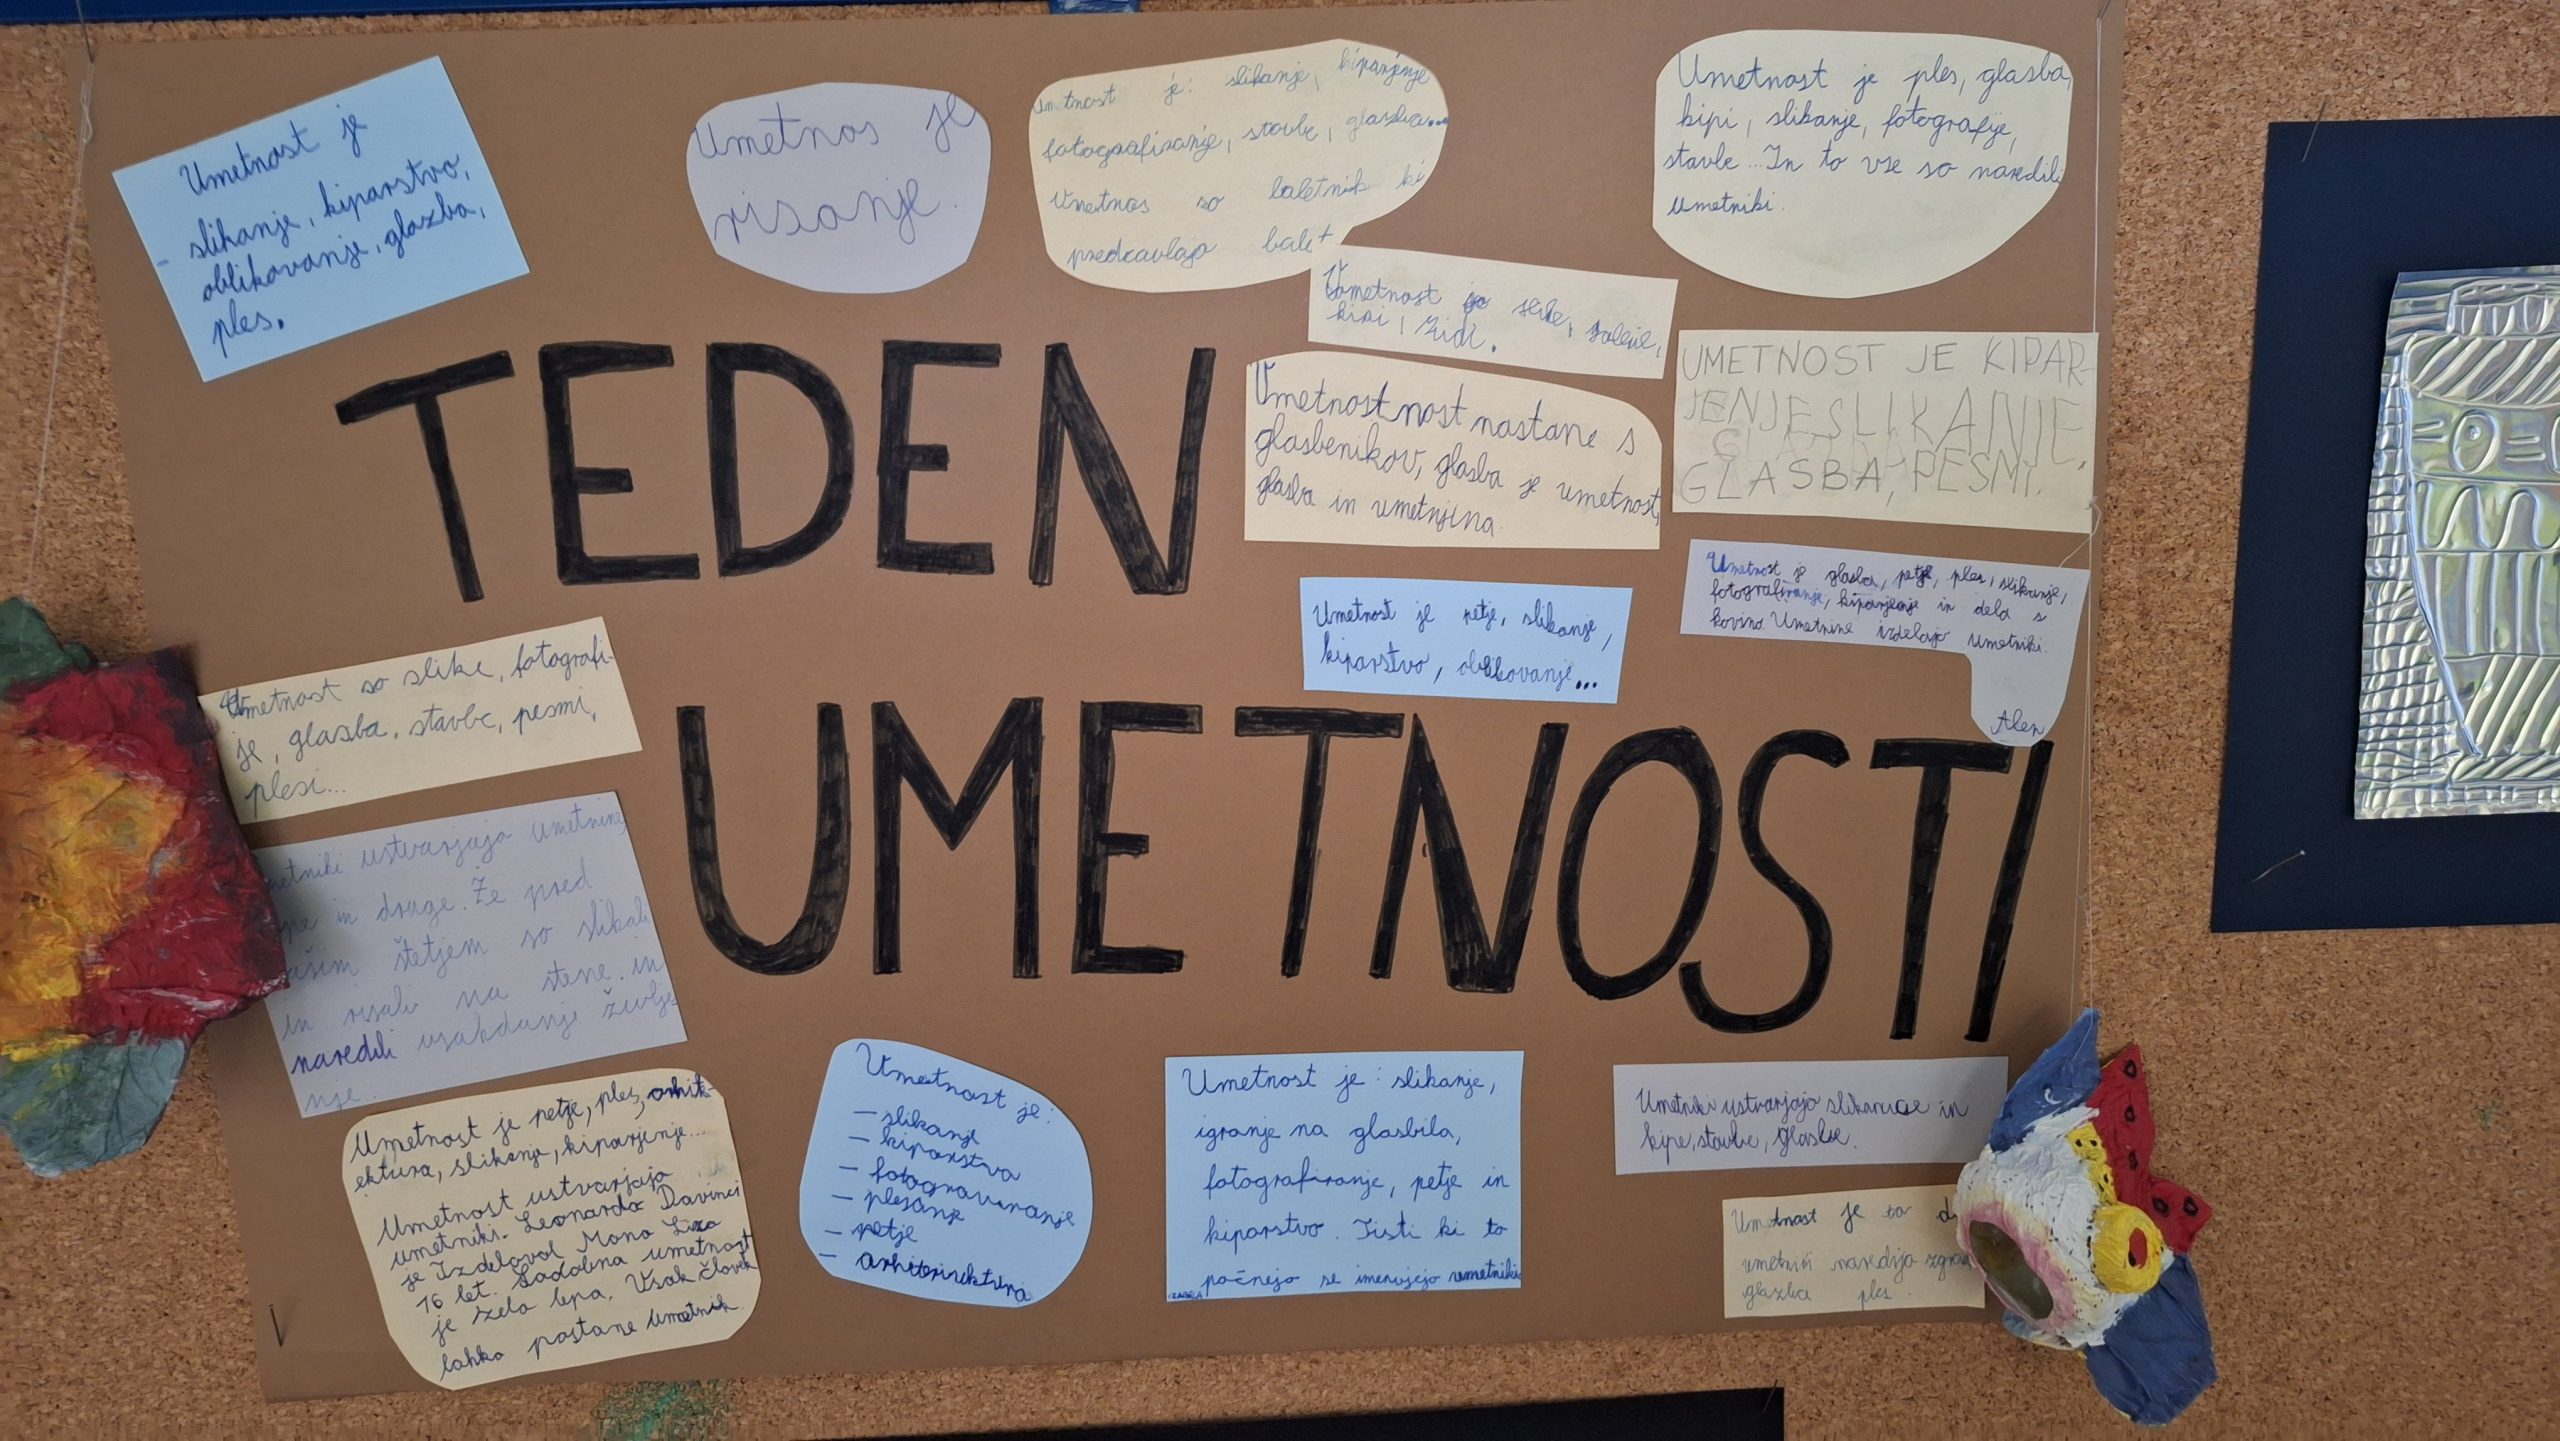 Umetnost je
slikanje, kiparstvo,
oblikovanje, glazba,
ples.
Umetnos je
risanje.
Umetnost je: slikanje, kiparjenje
fotografiranje, stavbe, glasba...
Umetnos so baletnik ki
predcavlajo balet
Umetnost je ples, glasba,
kipi, slikanje, fotografije,
stavbe ... In to vse so naredili
umetniki.
Umetnost
kipi, Zidi.
TEDEN
Umetnostnost nastane s
glasbenikov, glasba je umetnost,
glasba in umetnjina.
UMETNOST JE KIPAR-
JENJE SLIKANJE,
GLASBA, PESMI.
Umetnost je glasba, petje, ples, slikanje,
fotografiranje, kiparjenje in dela s
kovino. Umetnine izdelajo umetniki.
Alen
Umetnost je petje, slikanje,
kiparstvo, oblikovanje...
Umetnost so slike, fotografi-
je, glasba, stavbe, pesmi,
plesi...
UMETNOSTI
ustvarjajo umetnine,
in druge. Že pred
štetjem so slikali
in risali na stene. in
naredili vsakdanje življe
nje.
Umetnost je petje, ples, arhit-
ektura, slikanje, kiparjenje...
Umetnost ustvarjajo
umetniki. Leonardo Davinci
je Izdeloval Mona Liza
16 let. Sodobna umetnost
je zelo lepa. Vsak človek
lahko postane umetnik.
Umetnost je:
- slikanje
- kiparstva
- fotograviranje
- plesanje
- petje
-
Umetnost je: slikanje,
igranje na glasbila,
fotografiranje, petje in
kiparstvo. Tisti ki to
počnejo se imenujejo umetniki.
IZABELA
Umetniki ustvarjajo in
kipe, stavbe, glasbe.
Umetnost je to
umetniki naredijo
glazba ples.